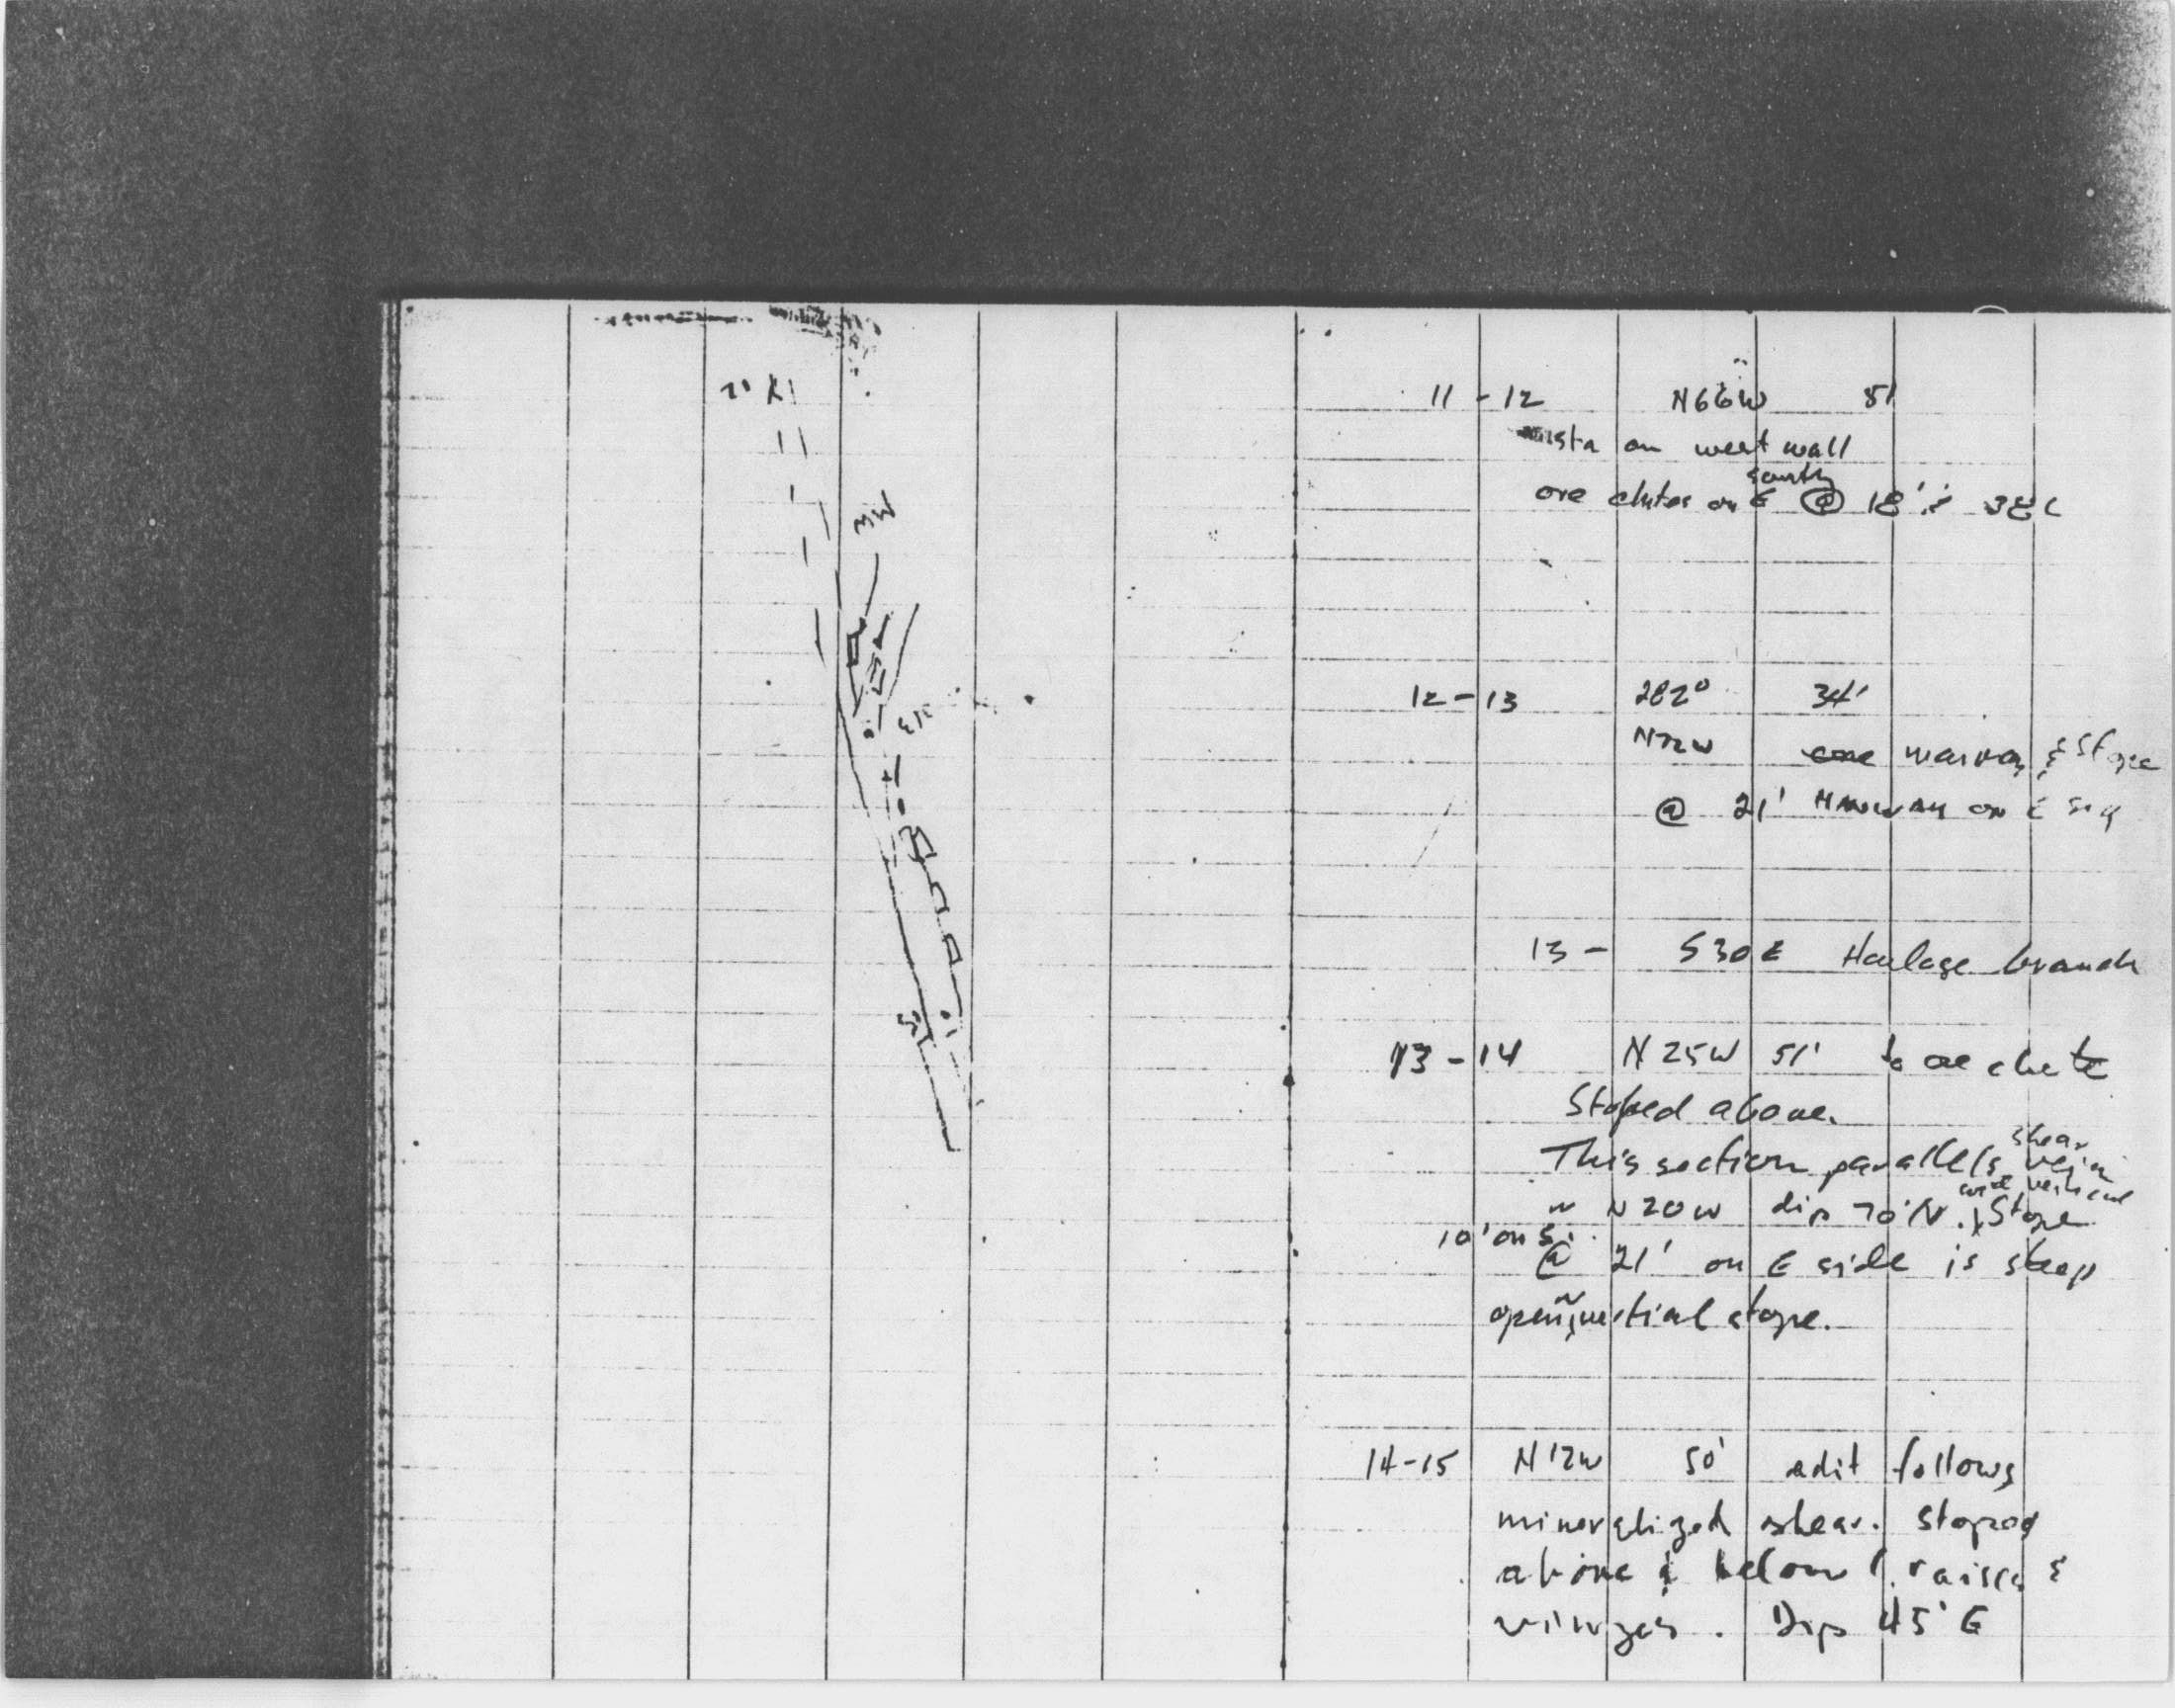 MW
11 - 12 N66W 51
sta on west wall
south
ore chutes on E @ 18' & 38'
12 - 13 282° 34'
N72W manway & stope
@ 21' MANWAY on E
13 - S30E Haulage branch
13 - 14 N25W 51' to ore chute
Stoped above.
shear
This section parallels vein
vertical
~ N20W dip 70°N. & Stope
10' on S.
@ 21' on E side is steep
open stope.
14-15 N12W 50' adit follows
mineralized shear. stoped
above & below (raises &
winzes. Dip 45°E